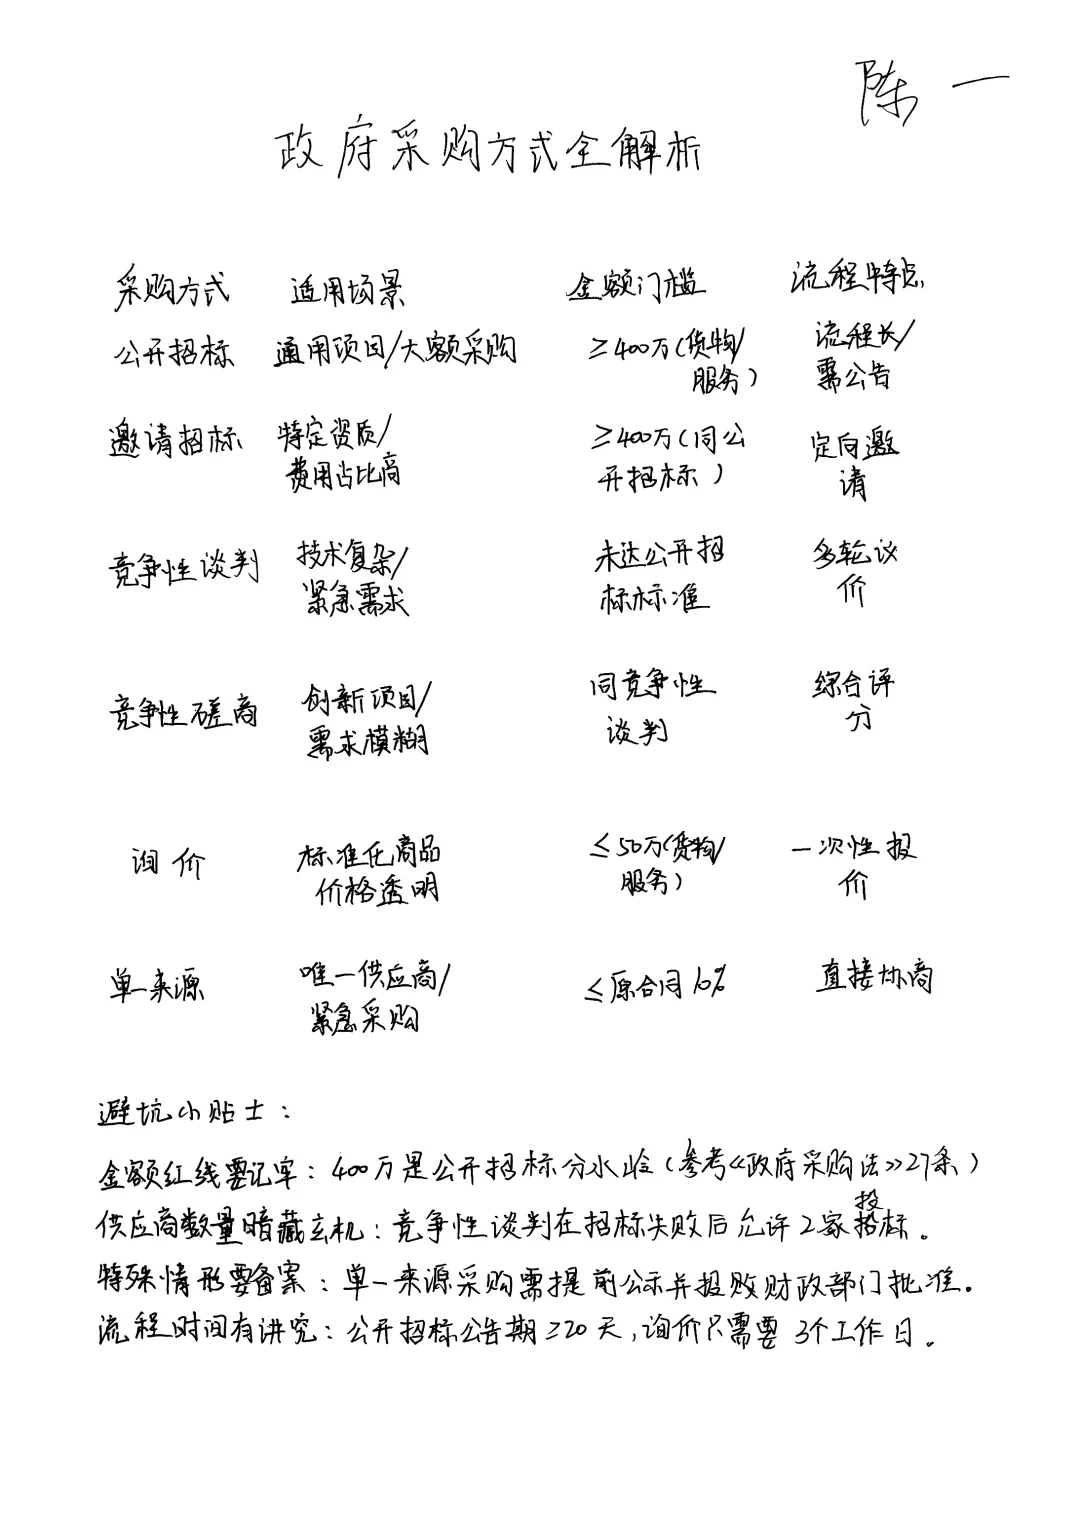 陈一
政府采购方式全解析
采购方式 适用场景 金额门槛 流程特点
公开招标 通用项目/大额采购 ≥400万(货物/ 流程长/
服务) 需公告
邀请招标 特定资质/ ≥400万(同公 定向邀
费用占比高 开招标) 请
竞争性谈判 技术复杂/ 未达公开招 多轮议
紧急需求 标标准 价
竞争性磋商 创新项目/ 同竞争性 综合评
需求模糊 谈判 分
询价 标准化商品 ≤50万(货物/ 一次性报
价格透明 服务) 价
单一来源 唯一供应商/ ≤原合同10% 直接协商
紧急采购
避坑小贴士:
金额红线要记牢:400万是公开招标分水岭(参考《政府采购法》27条)
供应商数量暗藏玄机:竞争性谈判在招标失败后允许2家投标。
特殊情形要备案:单一来源采购需提前公示并报财政部门批准。
流程时间有讲究:公开招标公告期≥20天,询价只需要3个工作日。